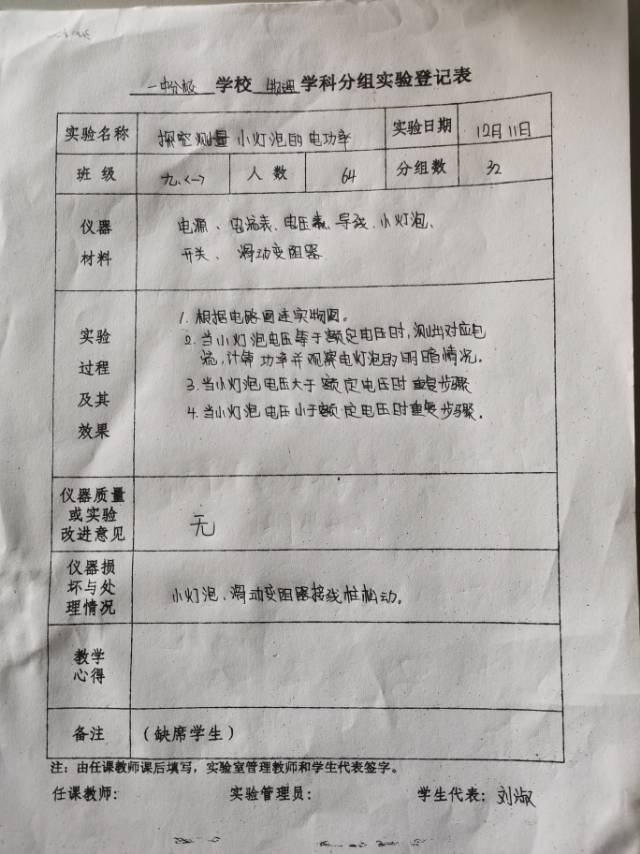 一中分校 学校 物理 学科分组实验登记表
实验名称 探究测量小灯泡的电功率 实验日期 12月11日
班 级 九.<一> 人 数 64 分组数 32
仪器
材料
电源、电流表、电压表、导线、小灯泡、
开关、滑动变阻器
实验
过程
及其
效果
1. 根据电路图连实物图。
2. 当小灯泡电压等于额定电压时,测出对应电
流,计算功率并观察电灯泡的明暗情况。
3. 当小灯泡电压大于额定电压时重复步骤
4. 当小灯泡电压小于额定电压时重复步骤。
仪器质量
或实验
改进意见
无
仪器损
坏与处
理情况
小灯泡、滑动变阻器接线柱松动。
教学
心得
备注 (缺席学生)
注:由任课教师课后填写,实验室管理教师和学生代表签字。
任课教师: 实验管理员: 学生代表: 刘淑